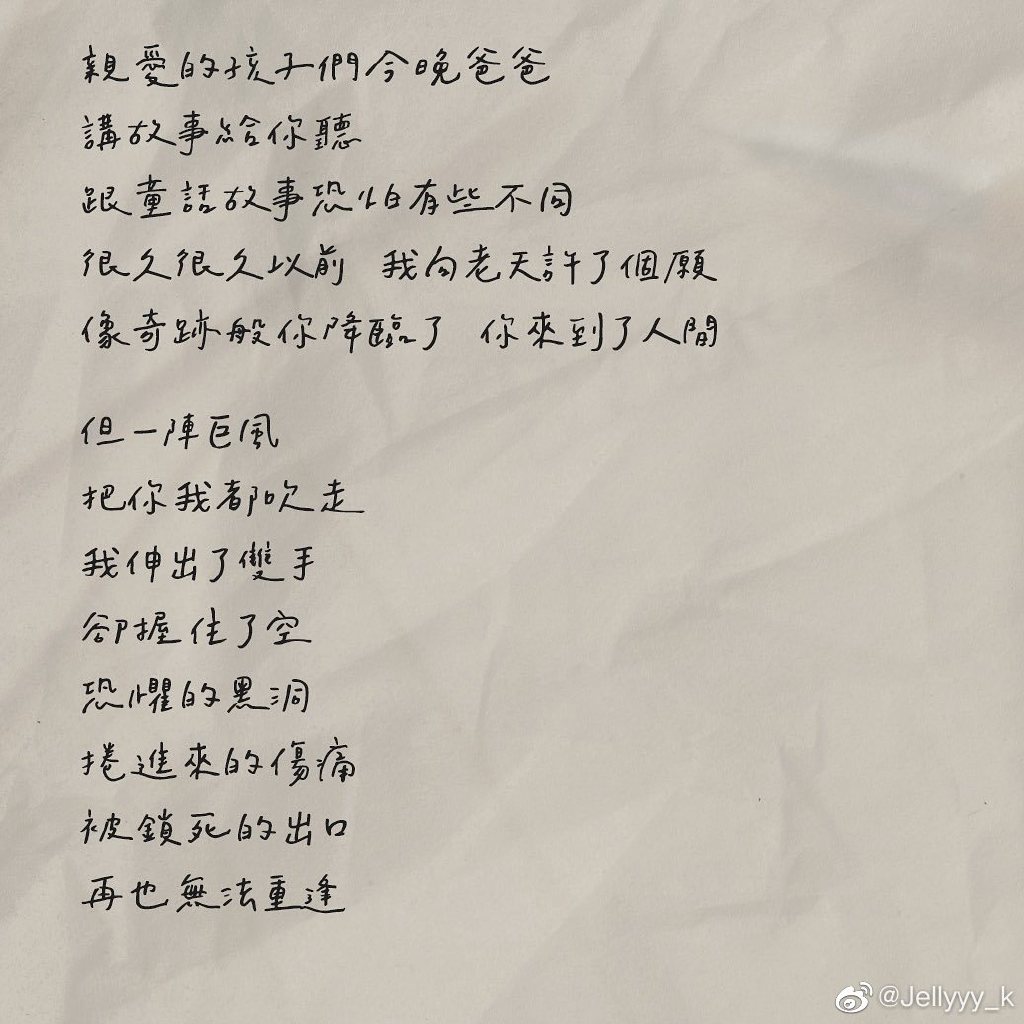 親愛的孩子們今晚爸爸
講故事給你聽
跟童話故事恐怕有些不同
很久很久以前 我向老天許了個願
像奇跡般你降臨了 你來到了人間
但一陣巨風
把你我都吹走
我伸出了雙手
卻握住了空
恐懼的黑洞
捲進來的傷痛
被鎖死的出口
再也無法重逢
@Jellyyy_k